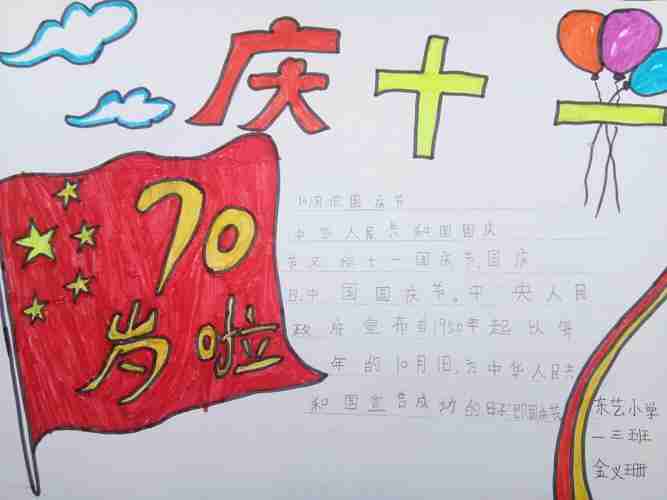 庆十一
70
岁啦
10月1日国庆节
中华人民共和国国庆
节又称十一国庆节,国庆
日,中国国庆节。中央人民
政府宣布自1950年起以每
年的10月1日,为中华人民共
和国宣告成功的日子即国庆节
东艺小学
一三班
金义珊